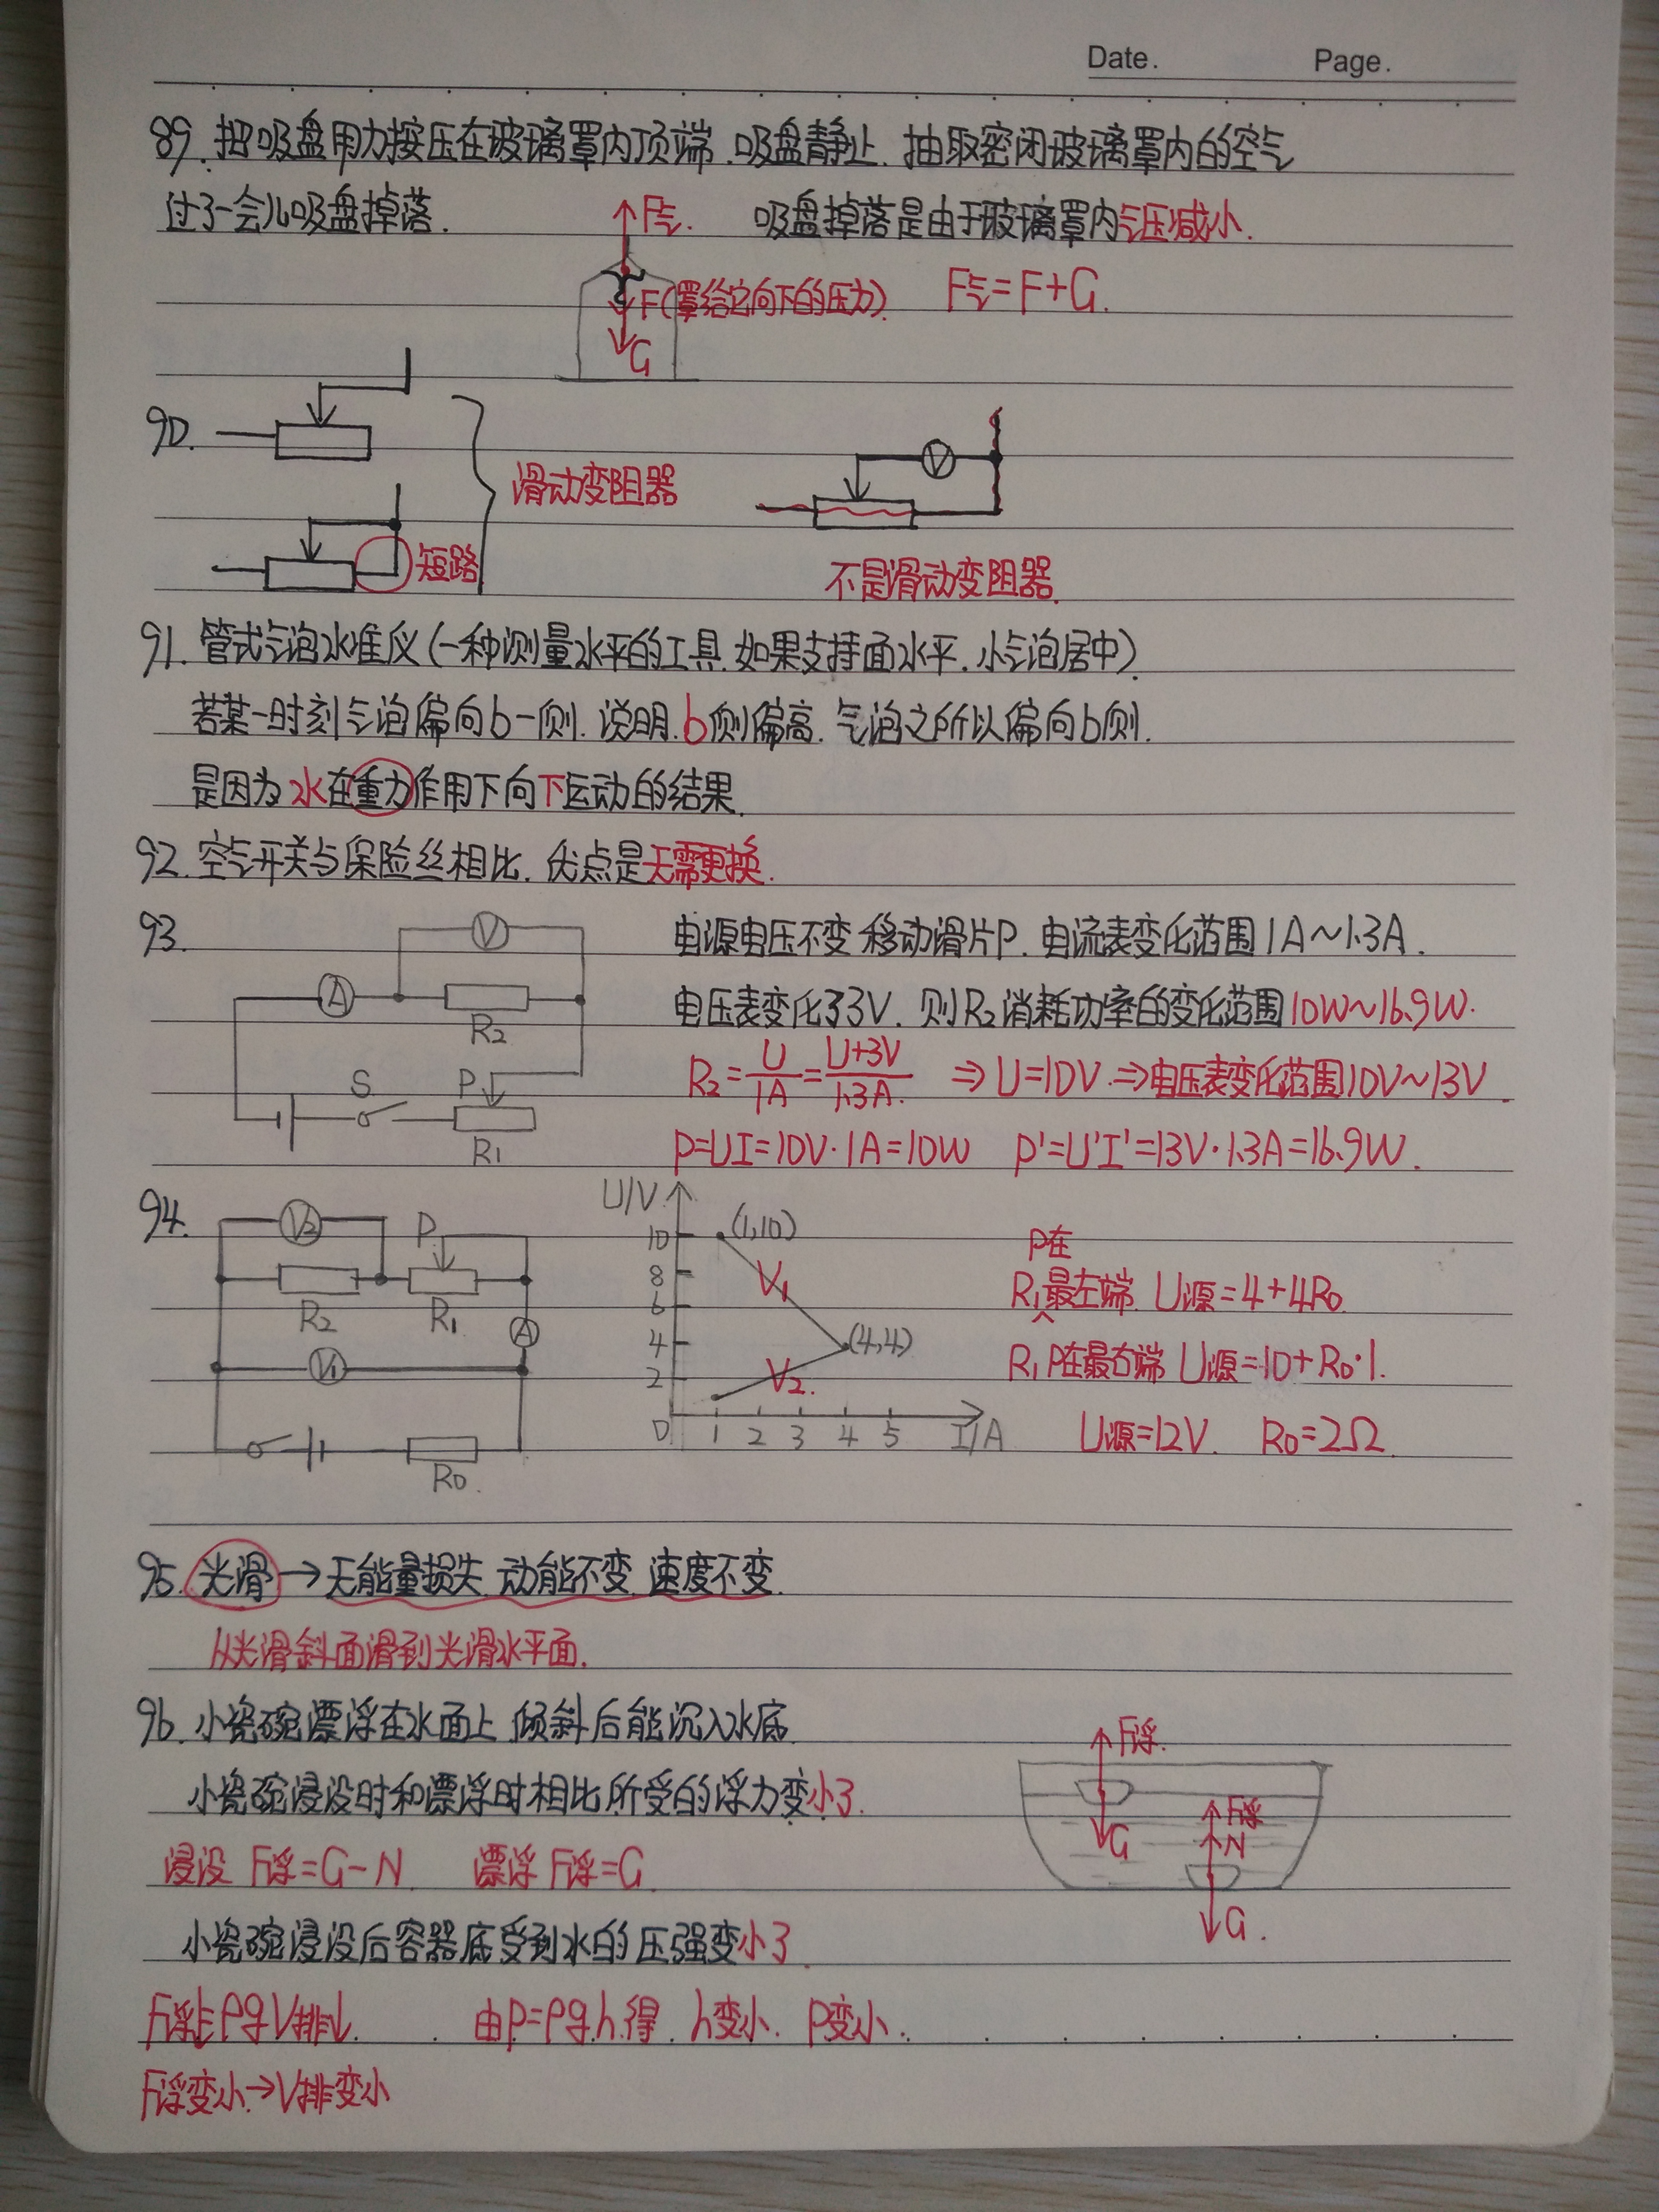 Date. Page.
89. 把吸盘用力按压在玻璃罩内顶端. 吸盘静止. 抽取密闭玻璃罩内的空气
过了一会儿吸盘掉落. F气. 吸盘掉落是由于玻璃罩内气压减小.
F(罩给它向下的压力). F气=F+G.
G
90.
滑动变阻器 V
短路 不是滑动变阻器.
91. 管式气泡水准仪(一种测量水平的工具. 如果支持面水平. 小气泡居中)
若某一时刻气泡偏向b一侧. 说明b侧偏高. 气泡之所以偏向b侧.
是因为水在重力作用下向下运动的结果.
92. 空气开关与保险丝相比. 优点是无需更换.
93. V 电源电压不变 移动滑片P. 电流表变化范围1A~1.3A.
A R2 电压表变化了3V. 则R2消耗功率的变化范围10W~16.9W.
S P R1 R2=U/1A=U+3V/1.3A. ⇒U=10V.⇒电压表变化范围10V~13V.
P=UI=10V·1A=10W P'=U'I'=13V·1.3A=16.9W.
94. V2 P R2 R1 A V1 R0.
U/V 10 8 6 4 2 0 1 2 3 4 5 I/A
(1,10) V1 (4,4) V2.
P在
R1最左端 U源=4+4R0
R1 P在最右端 U源=10+R0·1.
U源=12V. R0=2Ω
95. 光滑→无能量损失 动能不变 速度不变.
从光滑斜面滑到光滑水平面.
96. 小瓷碗漂浮在水面上 倾斜后能沉入水底. F浮.
小瓷碗浸没时和漂浮时相比 所受的浮力变小了. G F浮 N
浸没 F浮=G-N 漂浮 F浮=G
小瓷碗浸没后容器底受到水的压强变小了. G.
F浮↓=ρgV排↓. 由p=ρgh.得. h变小. P变小.
F浮变小→V排变小